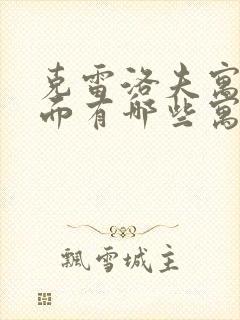 克雷洛夫寓
而有哪些寓
飘雪城主